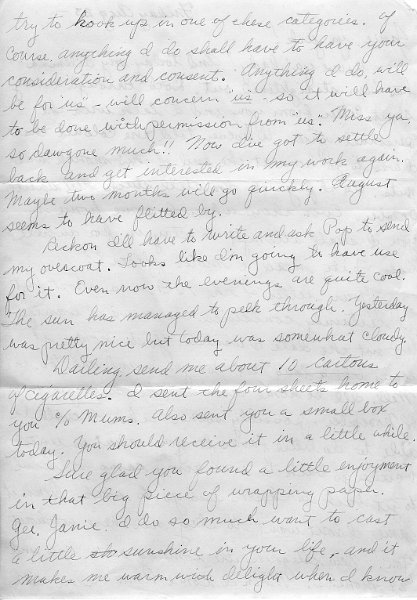 try to hook up in one of these categories. Of
course, anything I do shall have to have your
consideration and consent. Anything I do, will
be for us - will concern "us" - so it will have
to be done with permission from "us." Miss ya,
so dawgone much!! Now I've got to settle
back and get interested in my work again.
Maybe two months will go quickly. August
seems to have flitted by.
Reckon I'll have to write and ask Pop to send
my overcoat. Looks like I'm going to have use
for it. Even now the evenings are quite cool.
The sun has managed to peek through. Yesterday
was pretty nice but today was somewhat cloudy.
Darling, send me about 10 cartons
of cigarettes. I sent the four sheets home to
you c/o Mums. Also sent you a small box
today. You should receive it in a little while.
Sure glad you found a little enjoyment
in that big piece of wrapping paper.
Gee, Janie. I do so much want to cast
a little sunshine in your life, and it
makes me warm with delight when I know